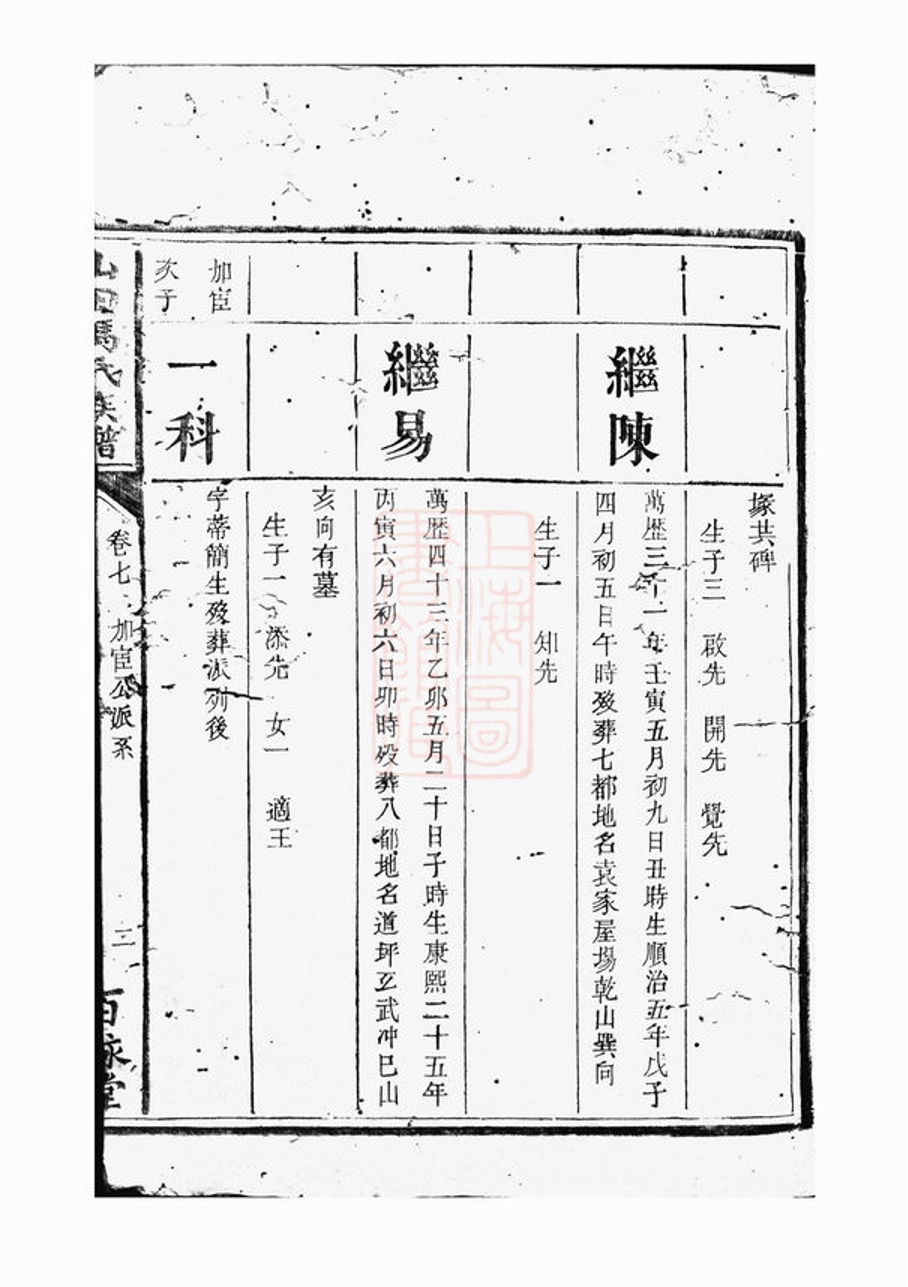 塚共碑
生子三 啟先 開先 覺先
繼陳
萬歷三十一年壬寅五月初九日丑時生順治五年戊子
四月初五日午時歿葬七都地名袁家屋場乾山巽向
生子一 知先
繼易
萬歷四十三年乙夘五月二十日子時生康熙二十五年
丙寅六月初六日卯時歿葬八都地名道坪玄武冲巳山
亥向有墓
生子一 添先 女一 適王
加宦
次子
一科
字蒂簡生歿葬派列後
山田馬氏族譜
卷七 加宦公派系
三
百泳堂
上海圖書館藏